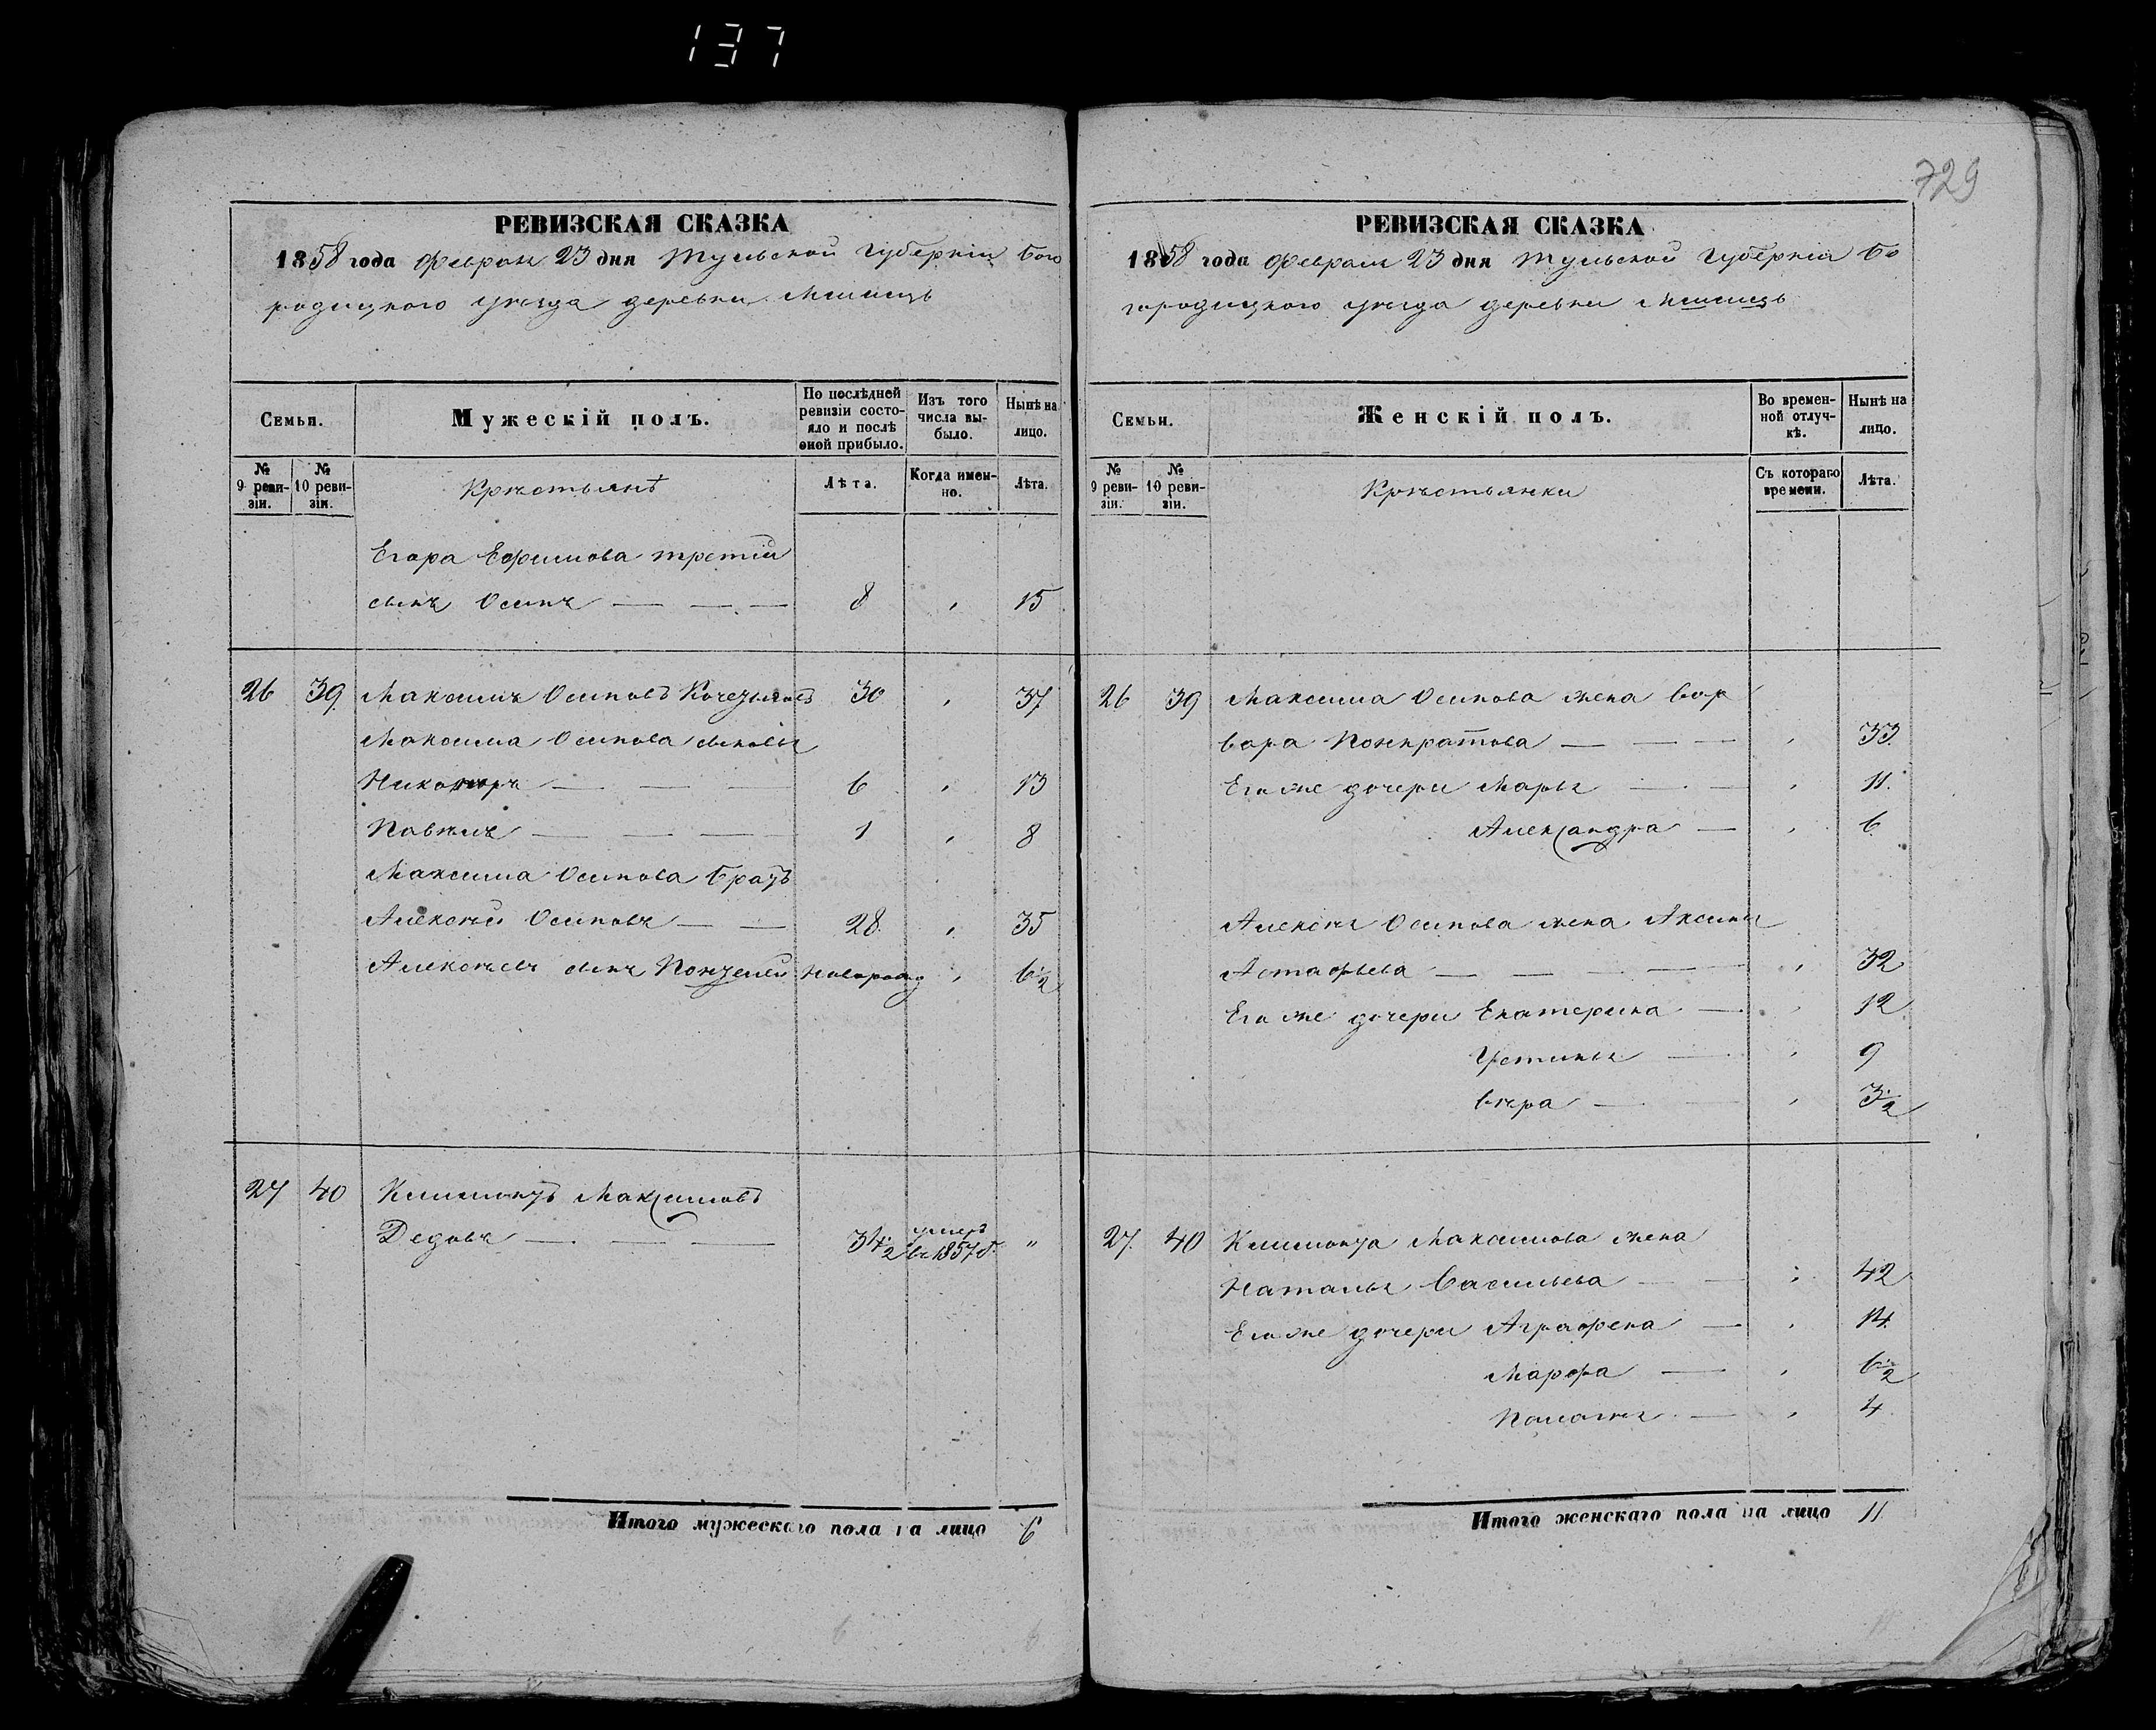 137
729
РЕВИЗСКАЯ СКАЗКА
1858 года Февраля 23 дня Тульской Губерніи Бого
родицкого уѣзда деревни
Семьи.
Мужескій полъ.
По послѣдней ревизіи состояло и послѣ оной прибыло.
Изъ того числа выбыло.
Нынѣ на лицо.
№ 9 ревизіи.
№ 10 ревизіи.
Крѣстьянѣ
Лѣта.
Когда именно.
Лѣта.
Егора Ефимова третій
сынъ Осипъ — — — 8 , 15
26 39 Максимъ Осиповъ 30 , 37
Максима Осипова сыновья
Никаноръ — — — 6 , 13
Павѣлъ — — — 1 , 8
Максима Осипова братъ
Алексѣй Осиповъ — — 28 , 35
Алексѣевъ сынъ , 6½
27 40 Климонтъ Максимовъ
Дедовъ — — — 34½ умеръ въ 1857 г. "
Итого мужескаго пола на лицо 6
РЕВИЗСКАЯ СКАЗКА
1858 года Февраля 23 дня Тульской Губерніи Бо
городицкого уѣзда деревни
Семьи.
Женскій полъ.
Во временной отлучкѣ.
Нынѣ на лицо.
№ 9 ревизіи.
№ 10 ревизіи.
Крѣстьянки
Съ котораго времени.
Лѣта.
26 39 Максима Осипова жена Вар
вара Понкратова — — — , 33
Его же дочери Марья — — , 11
Александра — , 6
Алексѣя Осипова жена Аксинья
Астафьева — — — — , 32
Его же дочери Екатерина — , 12
Устинья — , 9
Вѣра — — , 3½
27 40 Климонта Максимова жена
Наталья Васильева — — , 42
Его же дочери Аграфена — , 14
Марфа — , 6½
Палагѣя — , 4
Итого женскаго пола на лицо 11